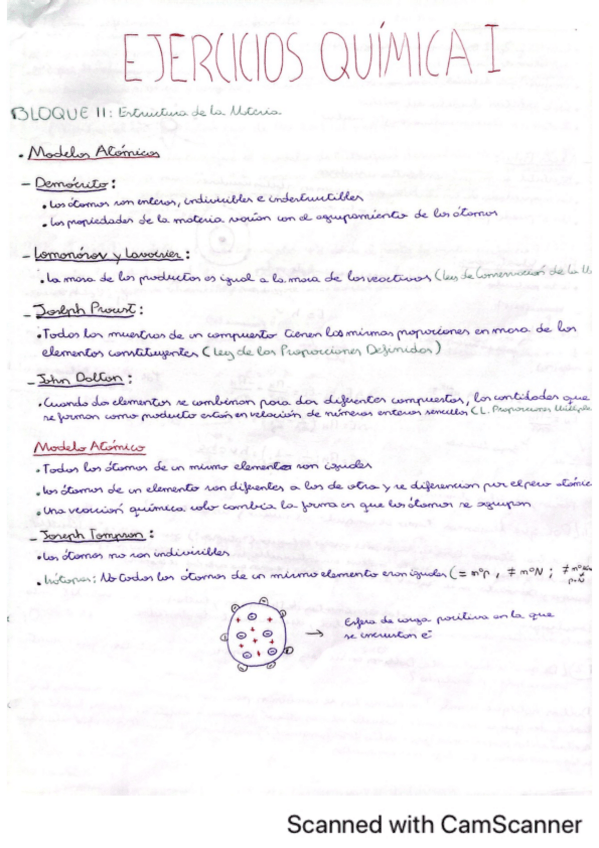 EJERCICIOS QUÍMICA I
BLOQUE II: Estructura de la Materia.
• Modelos Atómicos
- Demócrito:
• Los átomos son enteros, indivisibles e indestructibles
• Las propiedades de la materia varían con el agrupamiento de los átomos
- Lomonósov y Lavoisier:
• La masa de los productos es igual a la masa de los reactivos (Ley de Conservación de la
- Joseph Proust:
• Todas las muestras de un compuesto tienen las mismas proporciones en masa de los
elementos constituyentes (Ley de las Proporciones Definidas)
- John Dalton:
• Cuando dos elementos se combinan para dar diferentes compuestos, las cantidades que
se forman como producto están en relación de números enteros sencillos (L. Proporciones Múltiple
Modelo Atómico
• Todos los átomos de un mismo elemento son iguales
• Los átomos de un elemento son diferentes a los de otro y se diferencian por el peso atómic
• Una reacción química solo cambia la forma en que los átomos se agrupan
- Joseph Tompson:
• Los átomos no son indivisibles
• Isótopos: No todos los átomos de un mismo elemento eran iguales (= nºp, ≠ nºN; ≠
p+N
→ Esfera de carga positiva en la que
se incrustan e-
Scanned with CamScanner